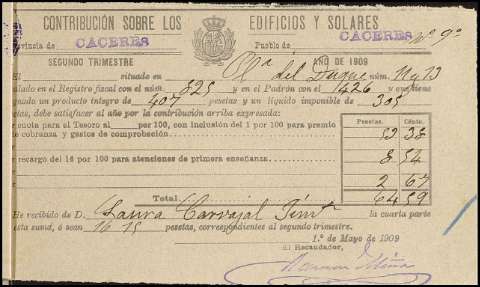 CONTRIBUCIÓN SOBRE LOS EDIFICIOS Y SOLARES
Provincia de CACERES Pueblo de CACERES Nº 9º
SEGUNDO TRIMESTRE AÑO DE 1909
El situado en Cª del Duque núm. 11 y 13
ñalado en el Registro fiscal con el núm. 825 y en el Padrón con el 1426 y
gnado un producto íntegro de 407 pesetas y un líquido imponible de 305
etas, debe satisfacer al año por la contribución arriba expresada:
Pesetas. Cénts.
cuota para el Tesoro al por 100, con inclusión del 1 por 100 para premio
e cobranza y gastos de comprobación 53 38
recargo del 16 por 100 para atenciones de primera enseñanza 8 54
2 67
Total 64 59
He recibido de D. Laura Carvajal la cuarta parte
esta suma, ó sean 16 15 pesetas, correspondientes al segundo trimestre.
1.º de Mayo de 1909
El Recaudador,
Ramon